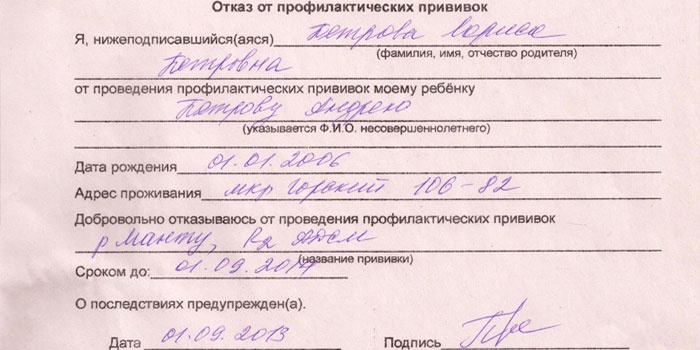 Отказ от профилактических прививок
Я, нижеподписавшийся(аяся) Петрова Лариса
(фамилия, имя, отчество родителя)
Петровна
от проведения профилактических прививок моему ребёнку
Петрову Андрею
(указывается Ф.И.О. несовершеннолетнего)
Дата рождения 01.01.2006
Адрес проживания мкр Горский 106-82
Добровольно отказываюсь от проведения профилактических прививок
р Манту, Rд АДСМ
(название прививки)
Сроком до: 01.09.2014
О последствиях предупрежден(а).
Дата 01.09.2013 Подпись